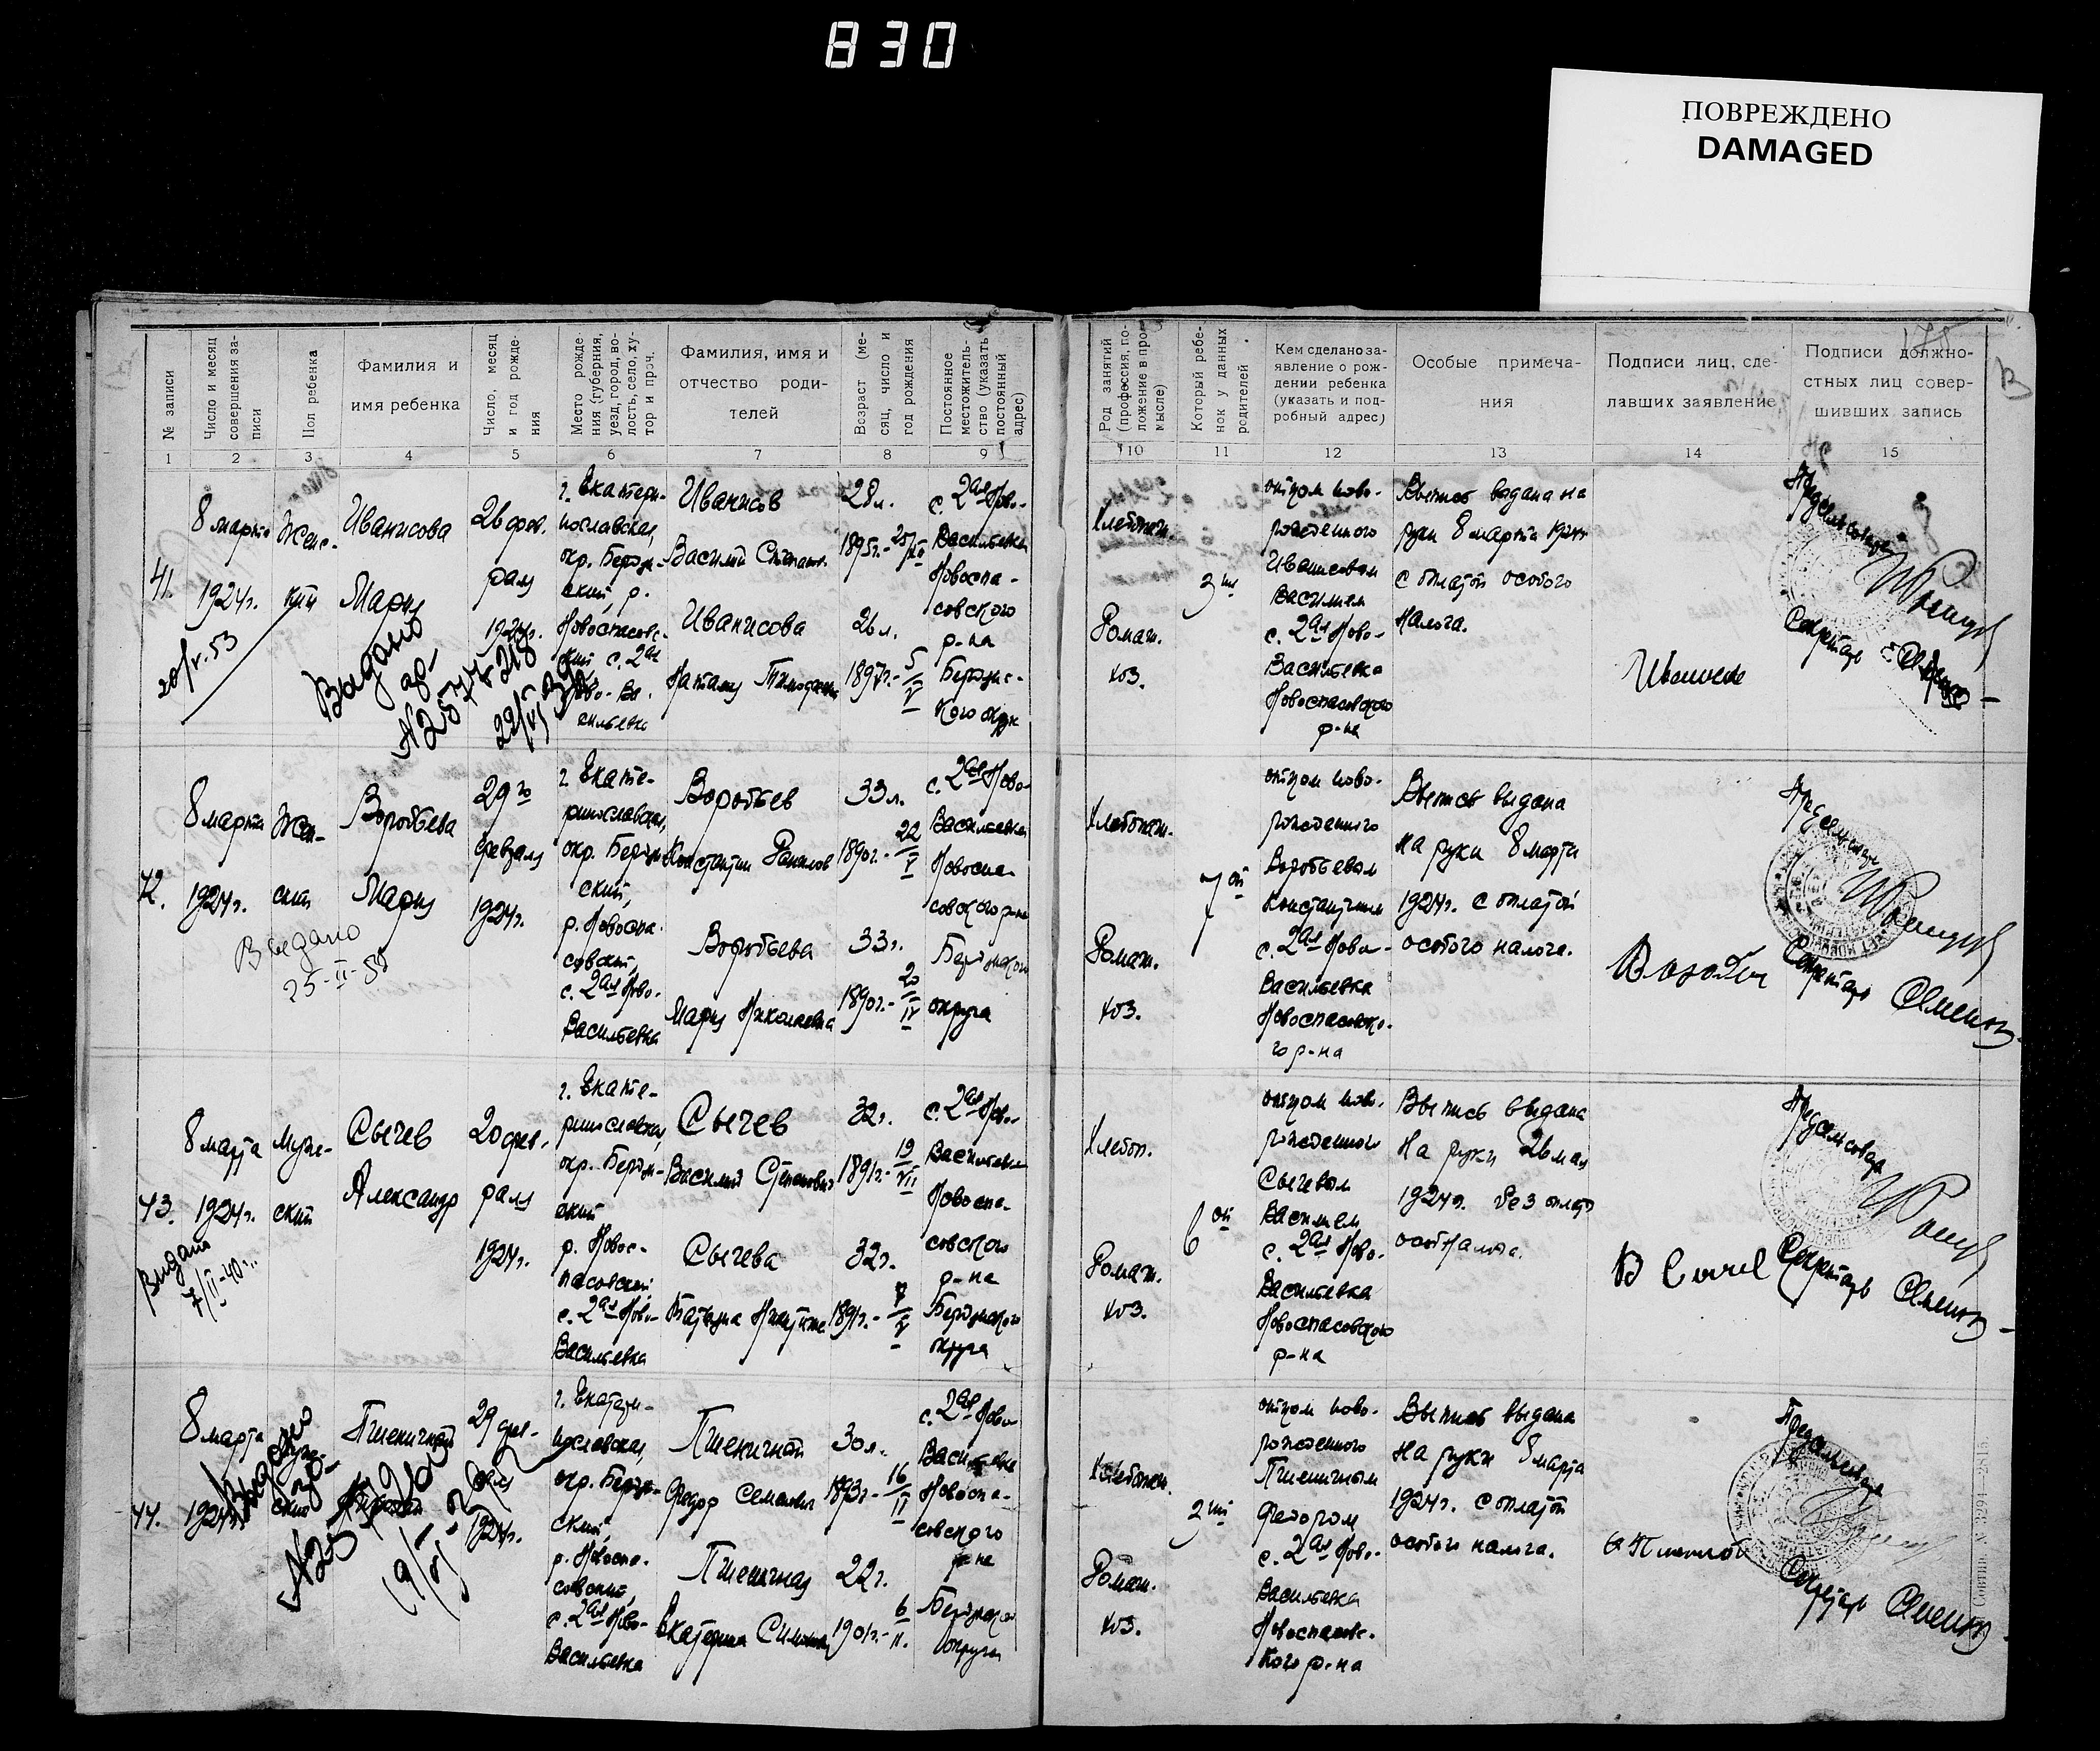 830
ПОВРЕЖДЕНО
DAMAGED
№ записи
Число и месяц
совершения за-
писи
Пол ребенка
Фамилия и
имя ребенка
Число, месяц
и год рожде-
ния
Место рожде-
ния (губерния,
уезд, город, во-
лость, село, ху-
тор и проч.
Фамилия, имя и
отчество роди-
телей
Возраст (ме-
сяц, число и
год рождения
Постоянное
местожитель-
ство (указать
постоянный
адрес)
Род занятий
(профессия, по-
ложение в про-
мысле)
Который ребе-
нок у данных
родителей
Кем сделано за-
явление о рож-
дении ребенка
(указать и под-
робный адрес)
Особые примеча-
ния
Подписи лиц, сде-
лавших заявление
Подписи должно-
стных лиц совер-
шивших запись
1 2 3 4 5 6 7 8 9 10 11 12 13 14 15
41.
8 марта
1924г.
20/V.53
Женс-
кий
Иванисова
Мария
Выдано
26 фев-
раля
1924г.
г. Екатери-
нославская,
окр. Бердян-
ский, р.
Новоспасовс-
кий, с. 2ая
Ново-Ва-
сильевка
Иванисов
Василий Степанов.
Иванисова
Наталия Тимофеевна
28л.
1895г.-
26л.
1897г.- 5/V
с. 2ая Ново-
Васильевка
Новоспа-
совского
р-на
Бердянс-
кого округ
Хлебопаш.
Домаш.
хоз.
3ий
отцом ново-
рожденного
Иванисовым
Василием
с. 2ая Ново-
Васильевка
Новоспасовского
р-на
Выпись выдана на
руки 8 марта 1924г
с оплатой особого
налога.
Предсельсовета
Секретарь
42.
8 марта
1924г.
Выдано
Жен-
ский
Воробьева
Мария
29го
февраля
1924г.
г. Екате-
ринославская,
окр. Бердян-
ский,
р. Новоспа-
совский,
с. 2ая Ново-
Васильевка
Воробьев
Константин Данилов
Воробьева
Мария Николаевна
33л.
1890г.- 22/V
33г.
1890г.- 20/IV
с. 2ая Ново-
Васильевка
Новоспа-
совского р-на
Бердянского
округа
Хлебопаш.
Домаш.
хоз.
7ой
отцом ново-
рожденного
Воробьевым
Константином
с. 2ая Ново-
Васильевка
Новоспасовско-
го р-на
Выпись выдана
на руки 8 марта
1924г. с оплатой
особого налога.
Предсельсовета
Секретарь Семенов
43.
8 марта
1924г.
Выдано
7/II-40г.
Муж-
ской
Сычев
Александр
20 фев-
раля
1924г.
г. Екате-
ринославская,
окр. Бердян-
ский
р. Новос-
пасовский
с. 2ая Ново-
Васильевка
Сычев
Василий Степанович
Сычева
Татьяна Никитична
32г.
1891г.- 19/VII
32г.
1891г.-
с. 2ая Ново-
Васильевка
Новоспа-
совского
р-на
Бердянского
округа
Хлебоп.
Домаш.
хоз.
6ой
отцом ново-
рожденного
Сычевым
Василием
с. 2ая Ново-
Васильевка
Новоспасовского
р-на
Выпись выдана
на руки 26 мая
1924г. без оплат
особ налога.
Предсельсовета
Секретарь Семенов
44.
8 марта
1924г.
Выдано
ский
Пшеничный
29 фев-
раля
1924г.
г. Екатери-
нославская,
окр. Бердян-
ский,
р. Новоспа-
совский,
с. 2ая Ново-
Васильевка
Пшеничный
Федор Семенович
Пшеничная
Екатерина
30л.
1893г.- 16/II
22г.
1901г.- 6/II.
с. 2ая Ново-
Васильевка
Новоспа-
совского
р-на
Бердянского
округа
Хлебопаш.
Домаш.
хоз.
2ий
отцом ново-
рожденного
Пшеничным
Федором
с. 2ая Ново-
Васильевка
Новоспасовс-
кого р-на
Выпись выдана
на руки 8 марта
1924г. с оплатой
особого налога.
Предсельсовета
Секретарь Семенов